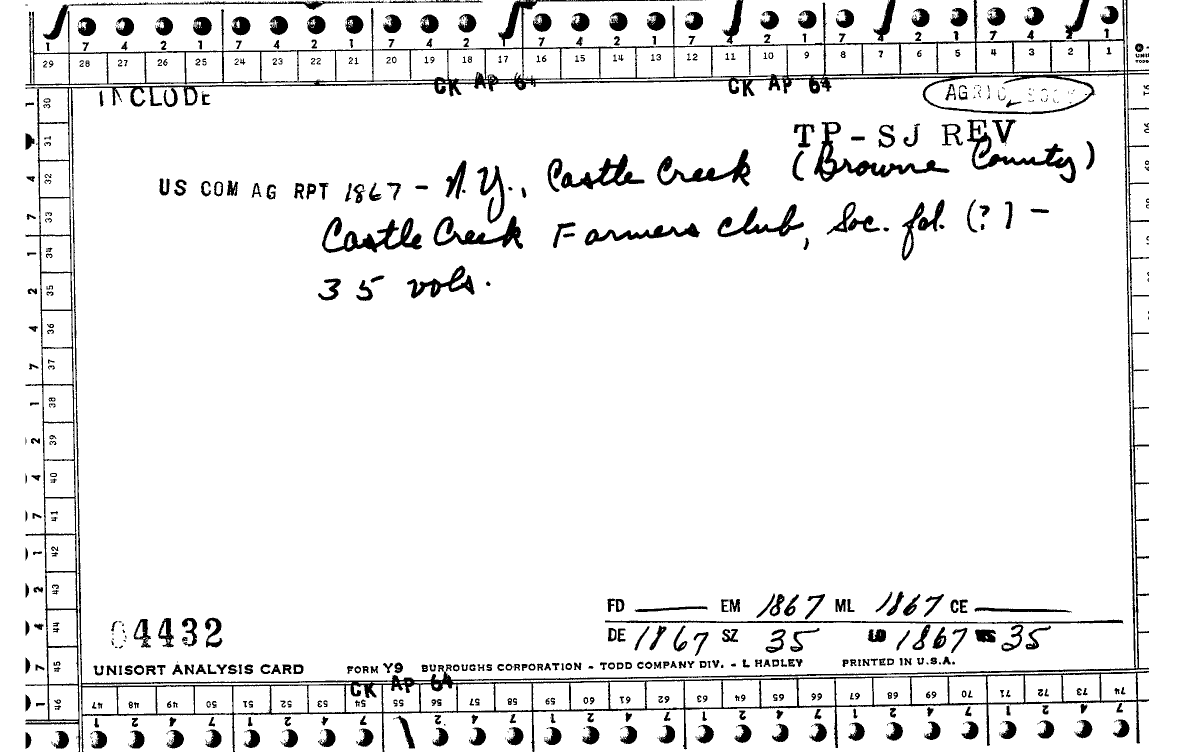 1 7 4 2 1 7 4 2 1 7 4 2 1 7 4 2 1 7 4 2 1 7 4 2 1 7 4 2 1
29 28 27 26 25 24 23 22 21 20 19 18 17 16 15 14 13 12 11 10 9 8 7 6 5 4 3 2 1
CK AP 64 CK AP 64
INCLUDE AGRIC SOC
TP-SJ REV
US COM AG RPT 1867 - N.Y., Castle Creek (Browne County)
Castle Creek Farmers club, Soc. fd. (?) -
35 vols.
30
31
4 32
7 33
1 34
2 35
4 36
7 37
1 38
2 39
4 40
7 41
1 42
2 43
4 44
7 45
1 46
FD EM 1867 ML 1867 CE
04432 DE 1867 SZ 35 LD 1867 VS 35
UNISORT ANALYSIS CARD FORM Y9 BURROUGHS CORPORATION - TODD COMPANY DIV. - L HADLEY PRINTED IN U.S.A.
CK AP 64
47 48 49 50 51 52 53 54 55 56 57 58 59 60 61 62 63 64 65 66 67 68 69 70 71 72 73 74
1 2 4 7 1 2 4 7 2 4 7 1 2 4 7 1 2 4 7 1 2 4 7 1 2 4 7